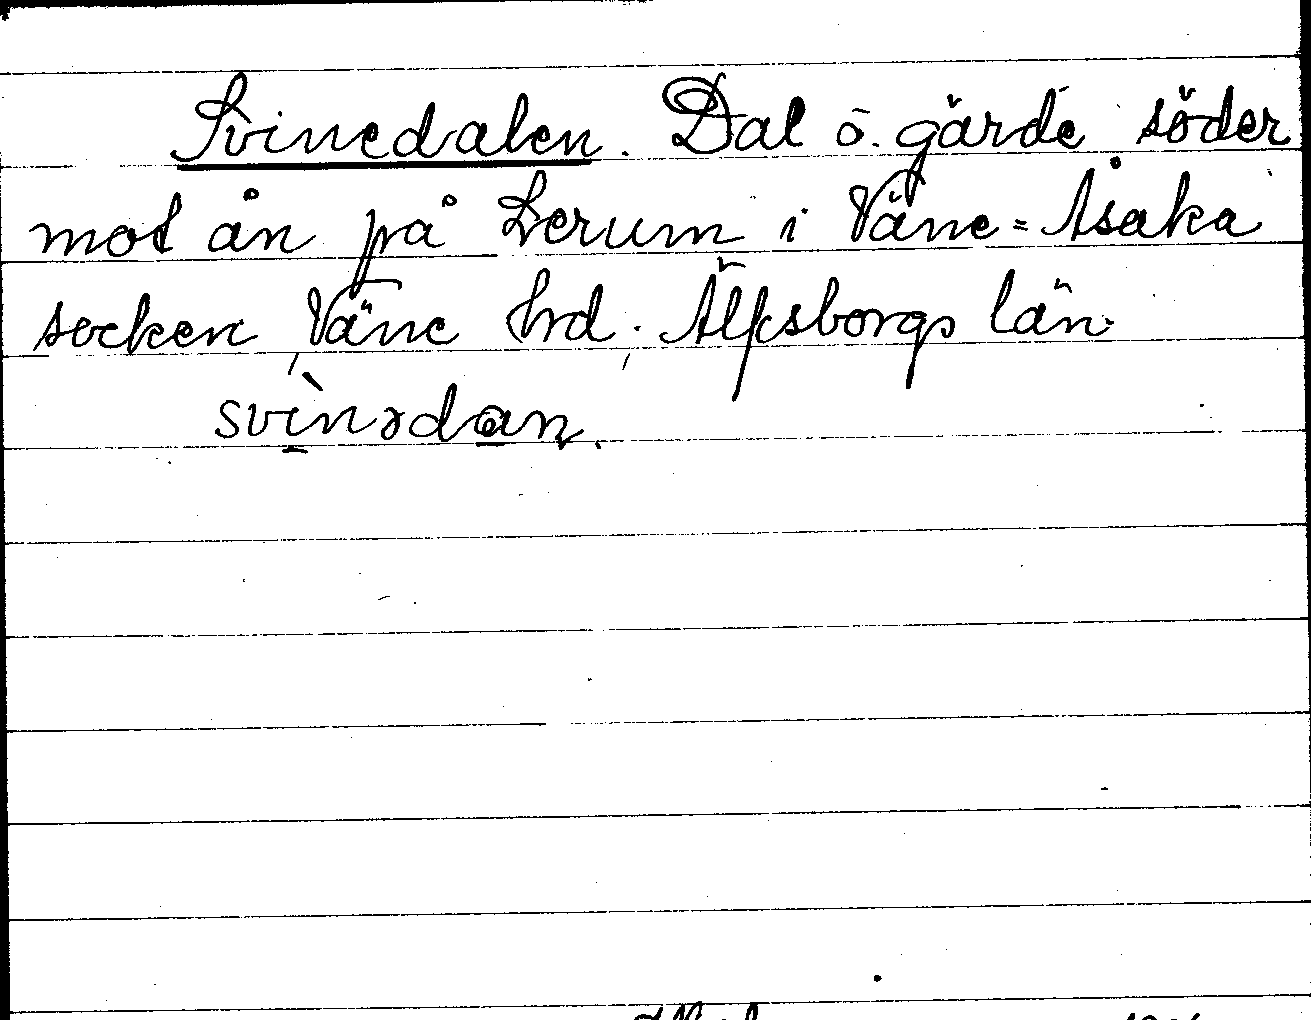 Svinedalen. Dal o. gärde söder
mot ån på Lerum i Väne=Åsaka
socken, Väne hrd, Älfsborgs län.
svìnədan.